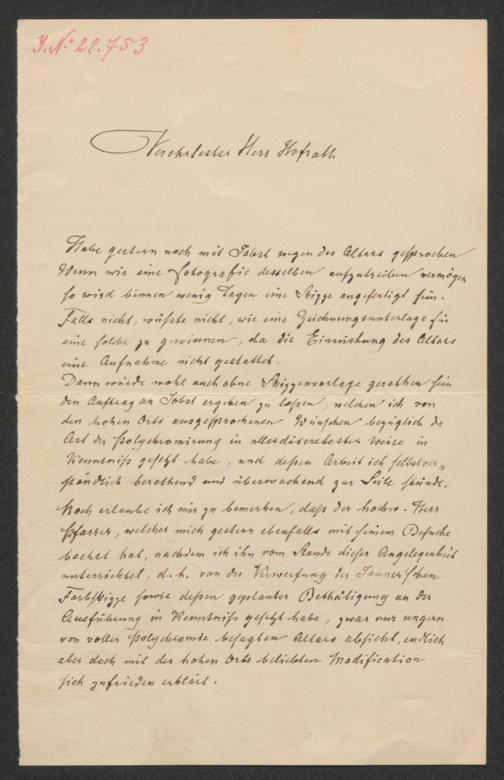 J. No 22.753
Verehrtester Herr Hofrath
Habe gestern noch mit Jobst wegen des Altars gesprochen.
Wenn wir eine Fotografie desselben aufzutreiben vermögen
so wird binnen wenig Tagen eine Skizze angefertigt sein.
Falls nicht, wüßte nicht, wie eine Zeichnungsunterlage für
eine solche zu gewinnen, da die Einrüstung des Altars
eine Aufnahme nicht gestattet.
Dann würde wohl auch ohne Skizzenvorlage gerathen sein
den Auftrag an Jobst ergehen zu laßen, welchen ich von
den hohen Orts ausgesprochenen Wünschen bezüglich der
Art der Polychromirung in allerdiscretester Weise in
Kenntniß gesetzt habe, und deßen Arbeit ich selbstver„
ständlich berathend und überwachend zur Seite stünde.
Noch erlaube ich mir zu bemerken, daß der hochw. Herr
Pfarrer, welcher mich gestern ebenfalls mit seinem Besuche
beehrt hat, nachdem ich ihn vom Stande dieser Angelegenheit
unterrichtet, d. h. von der Verwerfung der
Farbskizze sowie deßen geplanter Bethätigung an der
Ausführung in Kenntniß gesetzt habe, zwar nur ungern
von voller Polychromie besagten Altars absieht, endlich
aber doch mit der hohen Orts beliebten Modification
sich zufrieden erklärt.